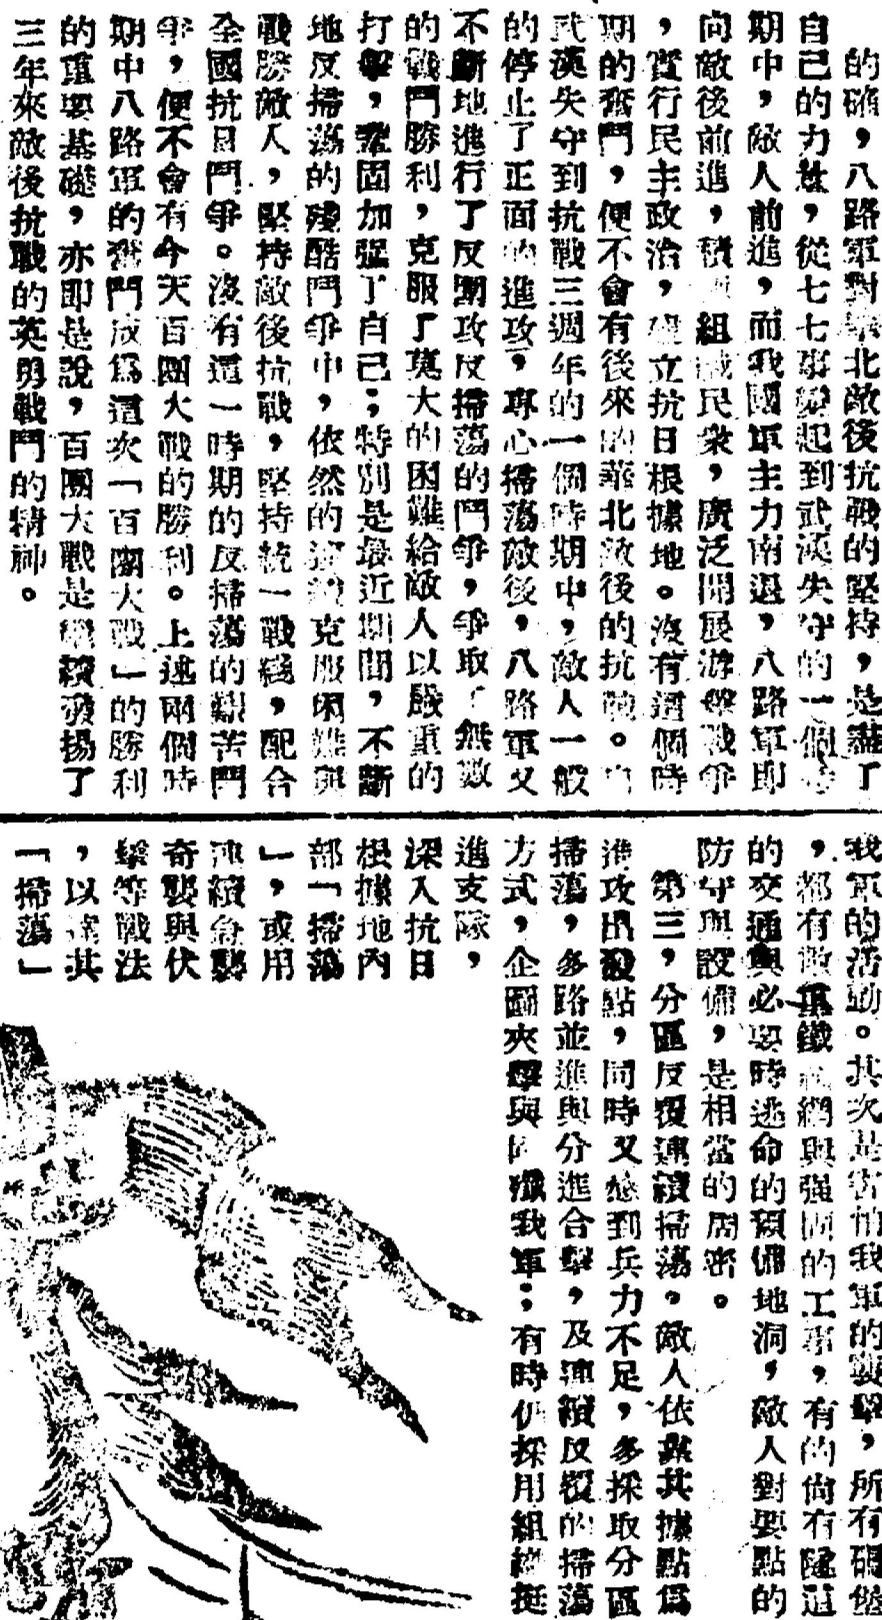 的確，八路軍對華北敵後抗戰的堅持，是盡了
自己的力量，從七七事變起到武漢失守的一個時
期中，敵人前進，而我國軍主力南退，八路軍即
向敵後前進，積極組織民衆，廣泛開展游擊戰爭
，實行民主政治，建立抗日根據地。沒有這個時
期的奮鬥，便不會有後來的華北敵後的抗戰。自
武漢失守到抗戰三週年的一個時期中，敵人一般
的停止了正面的進攻，專心掃蕩敵後，八路軍又
不斷地進行了反圍攻反掃蕩的鬥爭，爭取了無數
的戰鬥勝利，克服了莫大的困難給敵人以嚴重的
打擊，鞏固加强了自己；特別是最近期間，不斷
地反掃蕩的殘酷鬥爭中，依然的連續克服困難與
戰勝敵人，堅持敵後抗戰，堅持統一戰綫，配合
全國抗日鬥爭。沒有這一時期的反掃蕩的艱苦鬥
爭，便不會有今天百團大戰的勝利。上述兩個時
期中八路軍的奮鬥成爲這次「百團大戰」的勝利
的重要基礎，亦即是說，百團大戰是繼續發揚了
三年來敵後抗戰的英勇戰鬥的精神。
我軍的活動。其次是害怕我軍的襲擊，所有碉堡
，都有數重鐵絲網與强固的工事，有的尙有隧道
的交通與必要時逃命的預備地洞，敵人對要點的
防守與設備，是相當的周密。
第三，分區反覆連續掃蕩。敵人依靠其據點爲
進攻出發點，同時又感到兵力不足，多採取分區
掃蕩，多路並進與分進合擊，及連續反覆的掃蕩
方式，企圖夾擊與殲我軍；有時仍採用組織挺
進支隊，
深入抗日
根據地內
部「掃蕩
」，或用
連續急襲
奇襲與伏
擊等戰法
，以達其
「掃蕩」